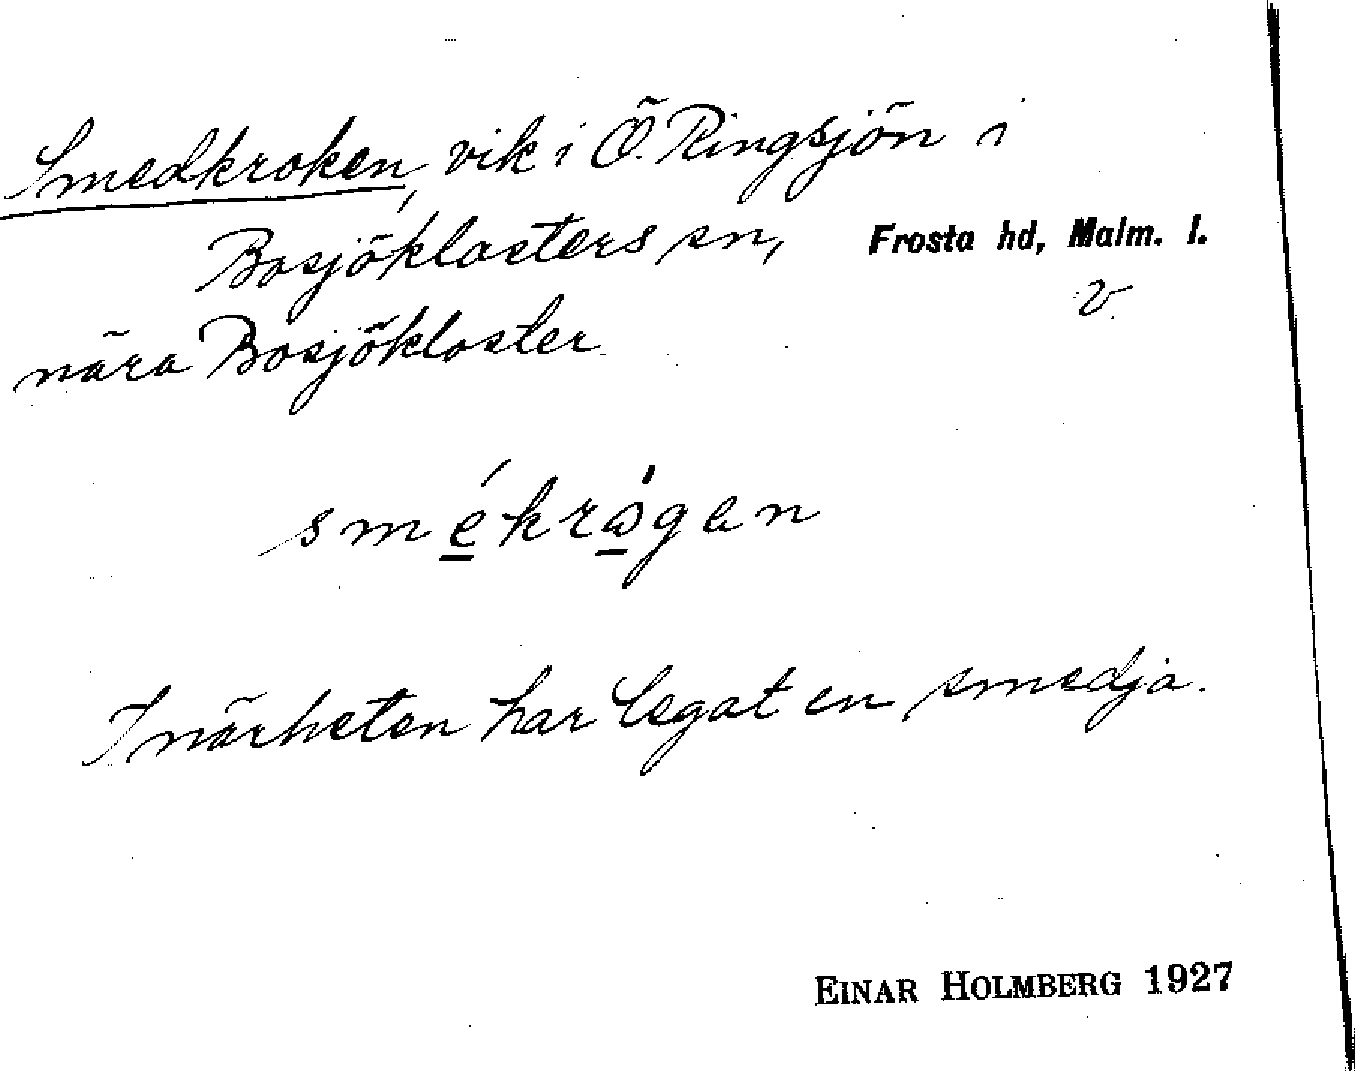 Smedkroken, vik i Ö. Ringsjön i
Bosjöklosters sn, Frosta hd, Malm. l.
v.
nära Bosjökloster
smékrógen
I närheten har legat en smedja.
EINAR HOLMBERG 1927